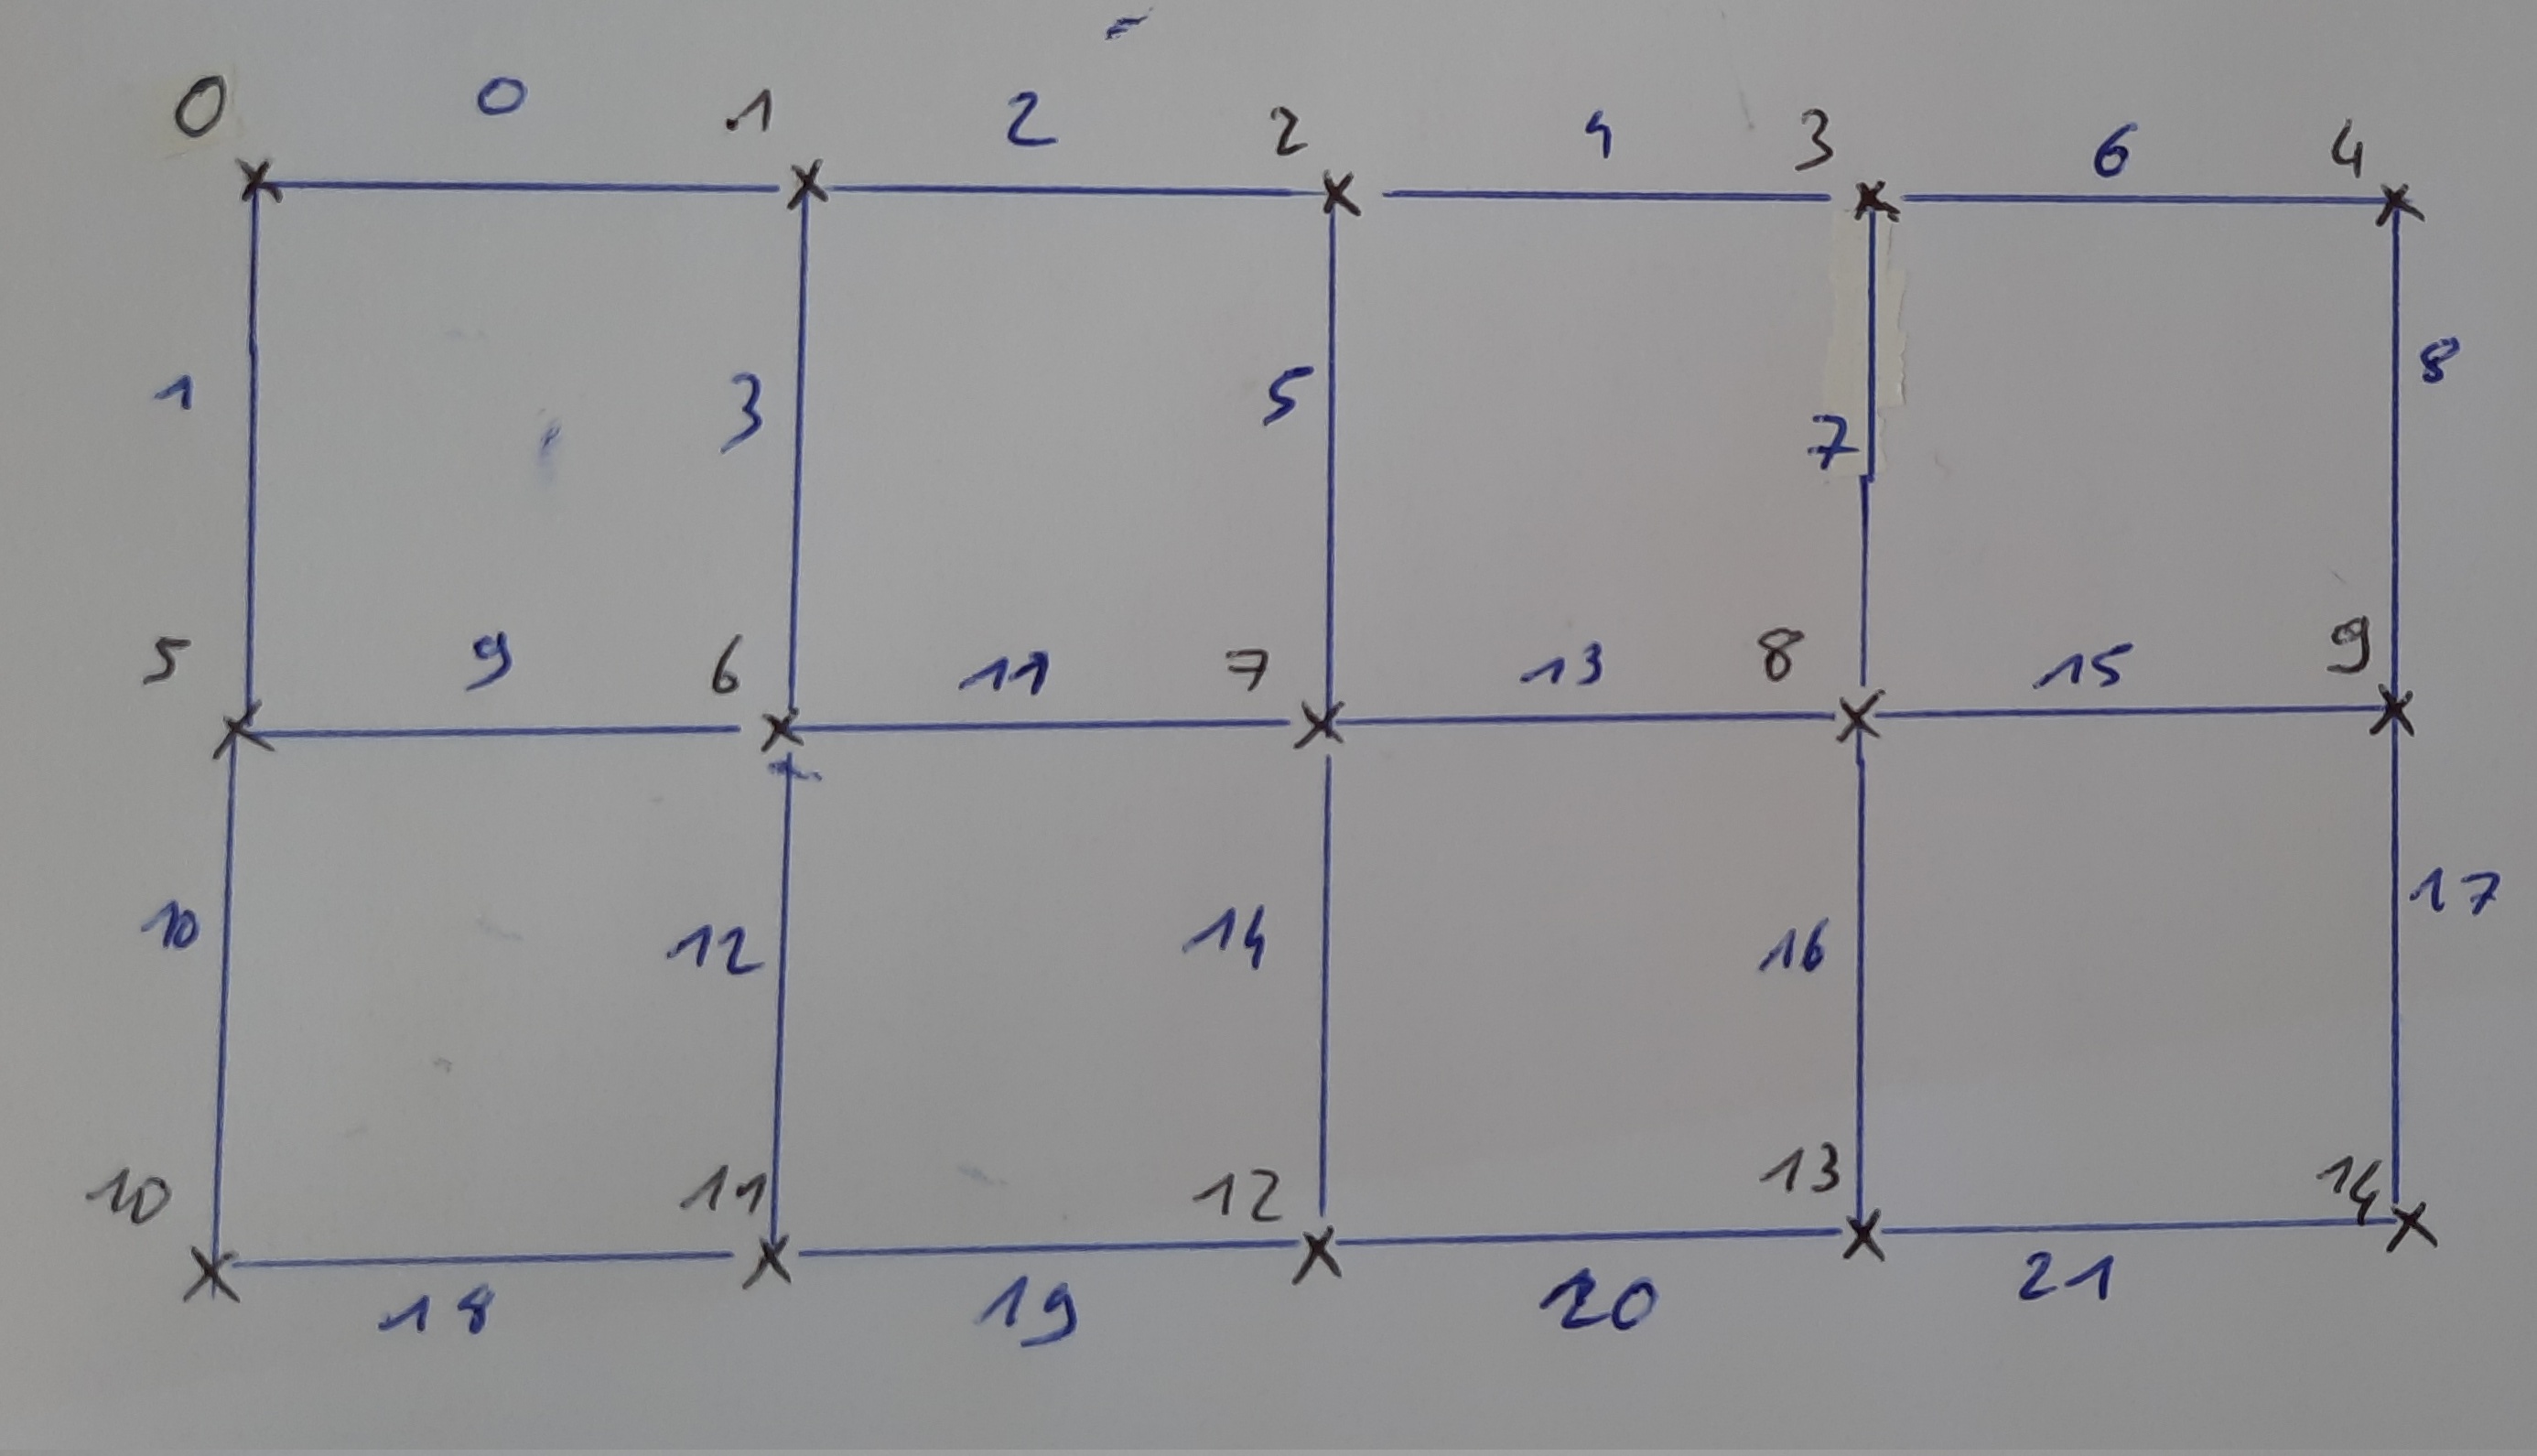 0 0 1 2 2 4 3 6 4
1 3 5 7 8
5 9 6 11 7 13 8 15 9
10 12 14 16 17
10 11 12 13 14
18 19 20 21